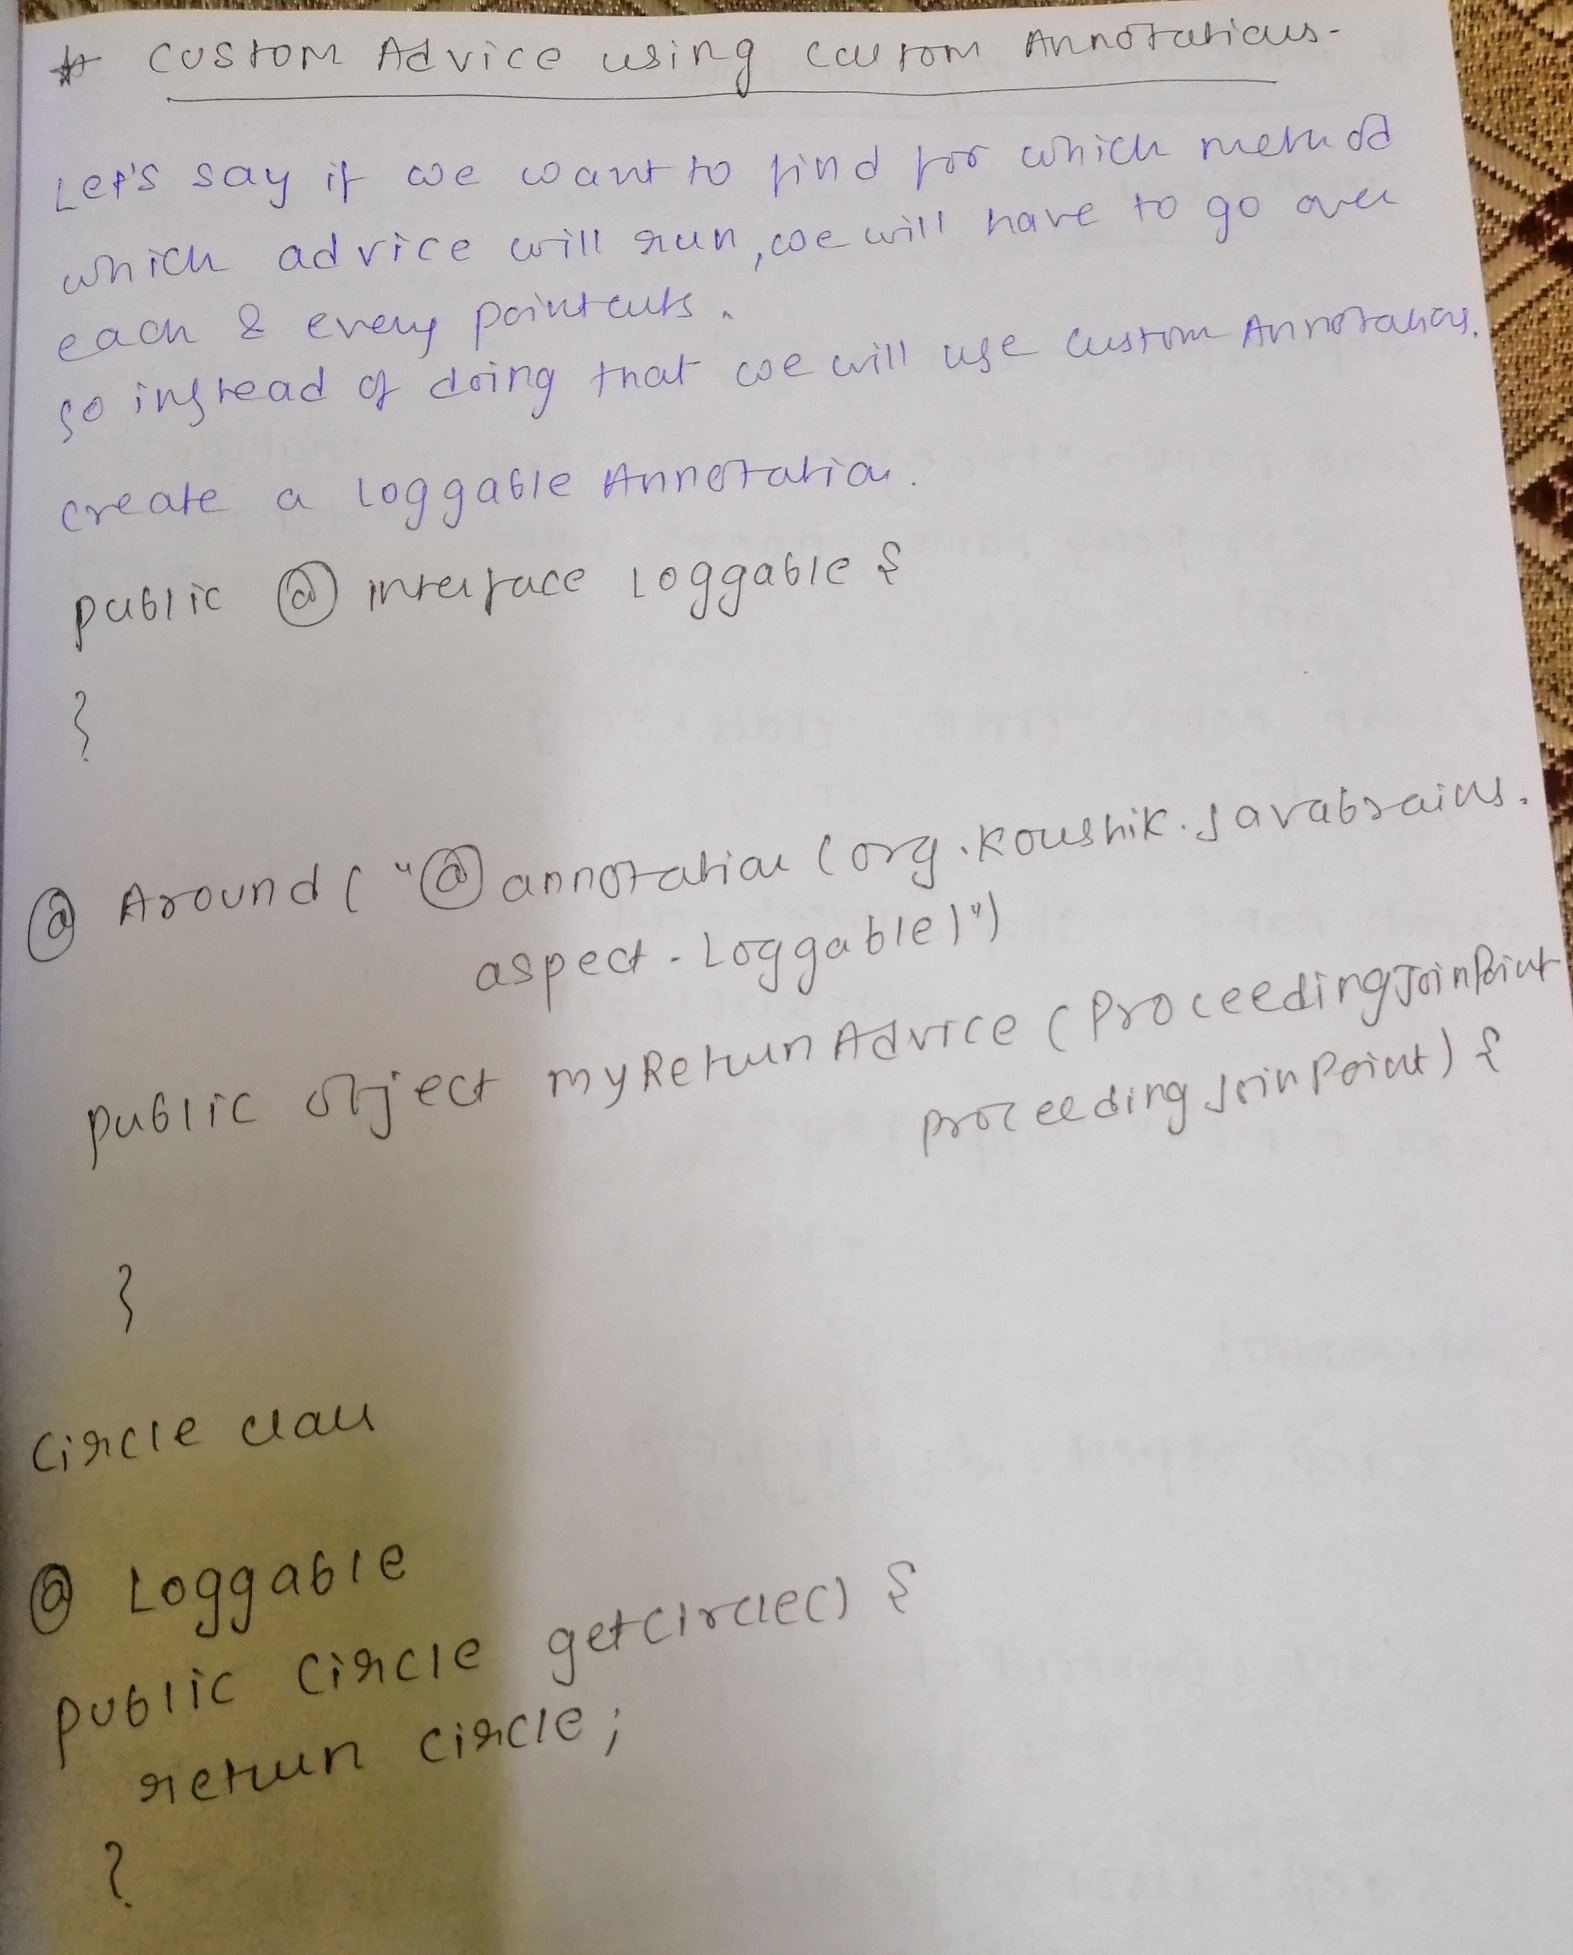 * Custom Advice using Custom Annotations-
Let's say if we want to find for which method
which advice will run, we will have to go over
each & every pointcuts.
so instead of doing that we will use Custom Annotations.
Create a Loggable Annotation.
public @ interface Loggable {
}
@ Around ( "@ annotation (org.koushik.javabrains.
aspect.Loggable)")
public Object myReturnAdvice (ProceedingJoinPoint
proceedingJoinPoint) {
}
Circle class
@ Loggable
public Circle getCircle() {
return circle;
}